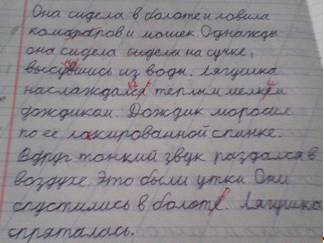 Она сидела в болоте и ловила
комаров и мошек. Однажды
она сидела сидела на сучке,
высунувшись из воды. Лягушка
наслаждался теплым мелким
дождиком. Дождик моросил
по ее лакированной спинке.
Вдруг тонкий звук раздался в
воздухе. Это были утки. Они
спустились в болоте. Лягушка
спряталась.